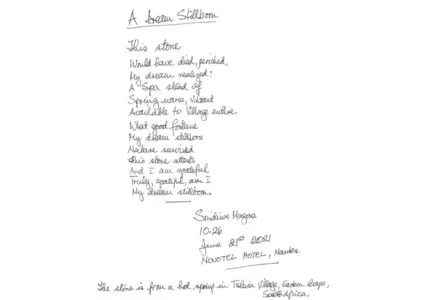 A Dream Stillborn
This stone
Would have died, perished,
My dream realized!
A Spa
Spring water, vibrant
Available to Village entire.
What good fortune
My dream stillborn
Nature survived
This stone attests
And I am grateful
Truly, grateful, am I
My dream stillborn.
Sindiwe Magona
10:26
June 21st 2021
NOVOTEL HOTEL, Nantes.
The stone is from a hot spring in Village, Eastern Cape,
South Africa,